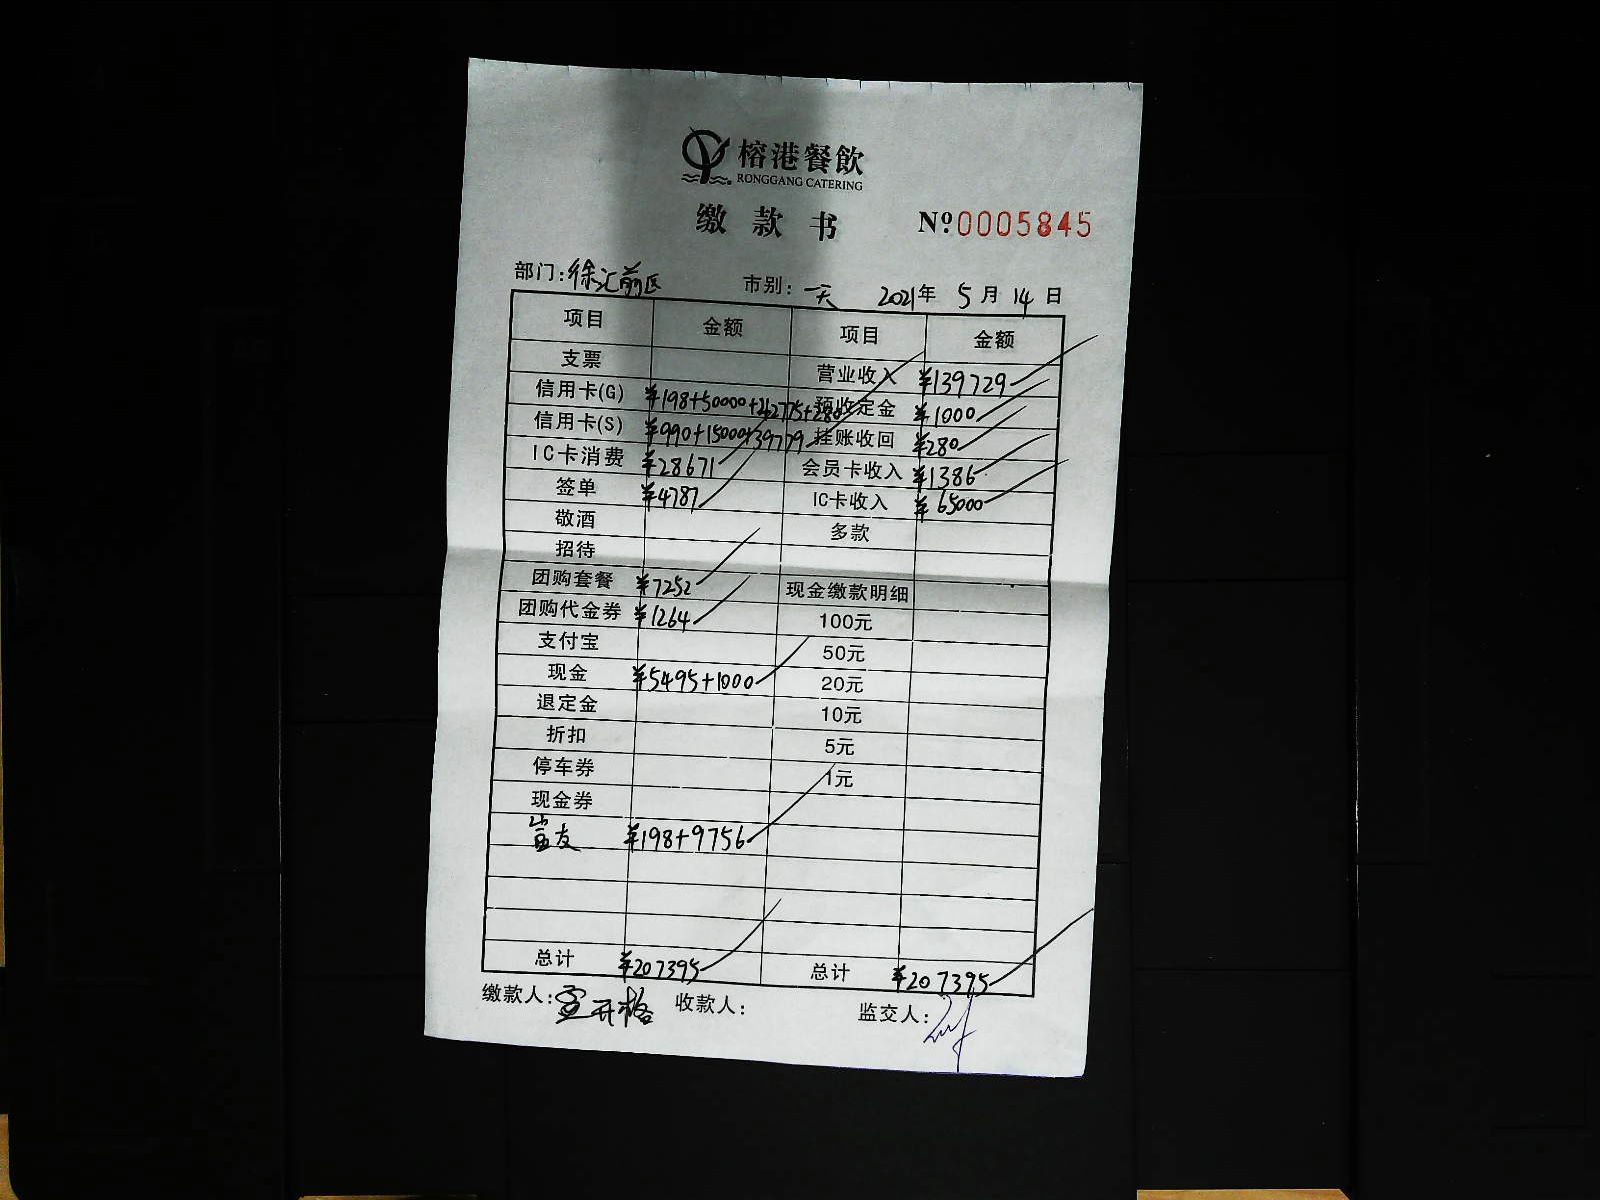 榕港餐飲
RONGGANG CATERING
缴款书 Nº0005845
部门:徐汇前区 市别:一天 2021年 5月 14日
项目 金额 项目 金额
支票 营业收入 ¥139729
信用卡(G) ¥198+50000+42775+280 预收定金 ¥1000
信用卡(S) ¥990+15000+39779 挂账收回 ¥280
IC卡消费 ¥28671 会员卡收入 ¥1386
签单 ¥4787 IC卡收入 ¥65000
敬酒 多款
招待
团购套餐 ¥7252 现金缴款明细
团购代金券 ¥1264 100元
支付宝 50元
现金 ¥5495+1000 20元
退定金 10元
折扣 5元
停车券 1元
现金券
¥198+9756
总计 ¥207395 总计 ¥207395
缴款人: 收款人: 监交人: